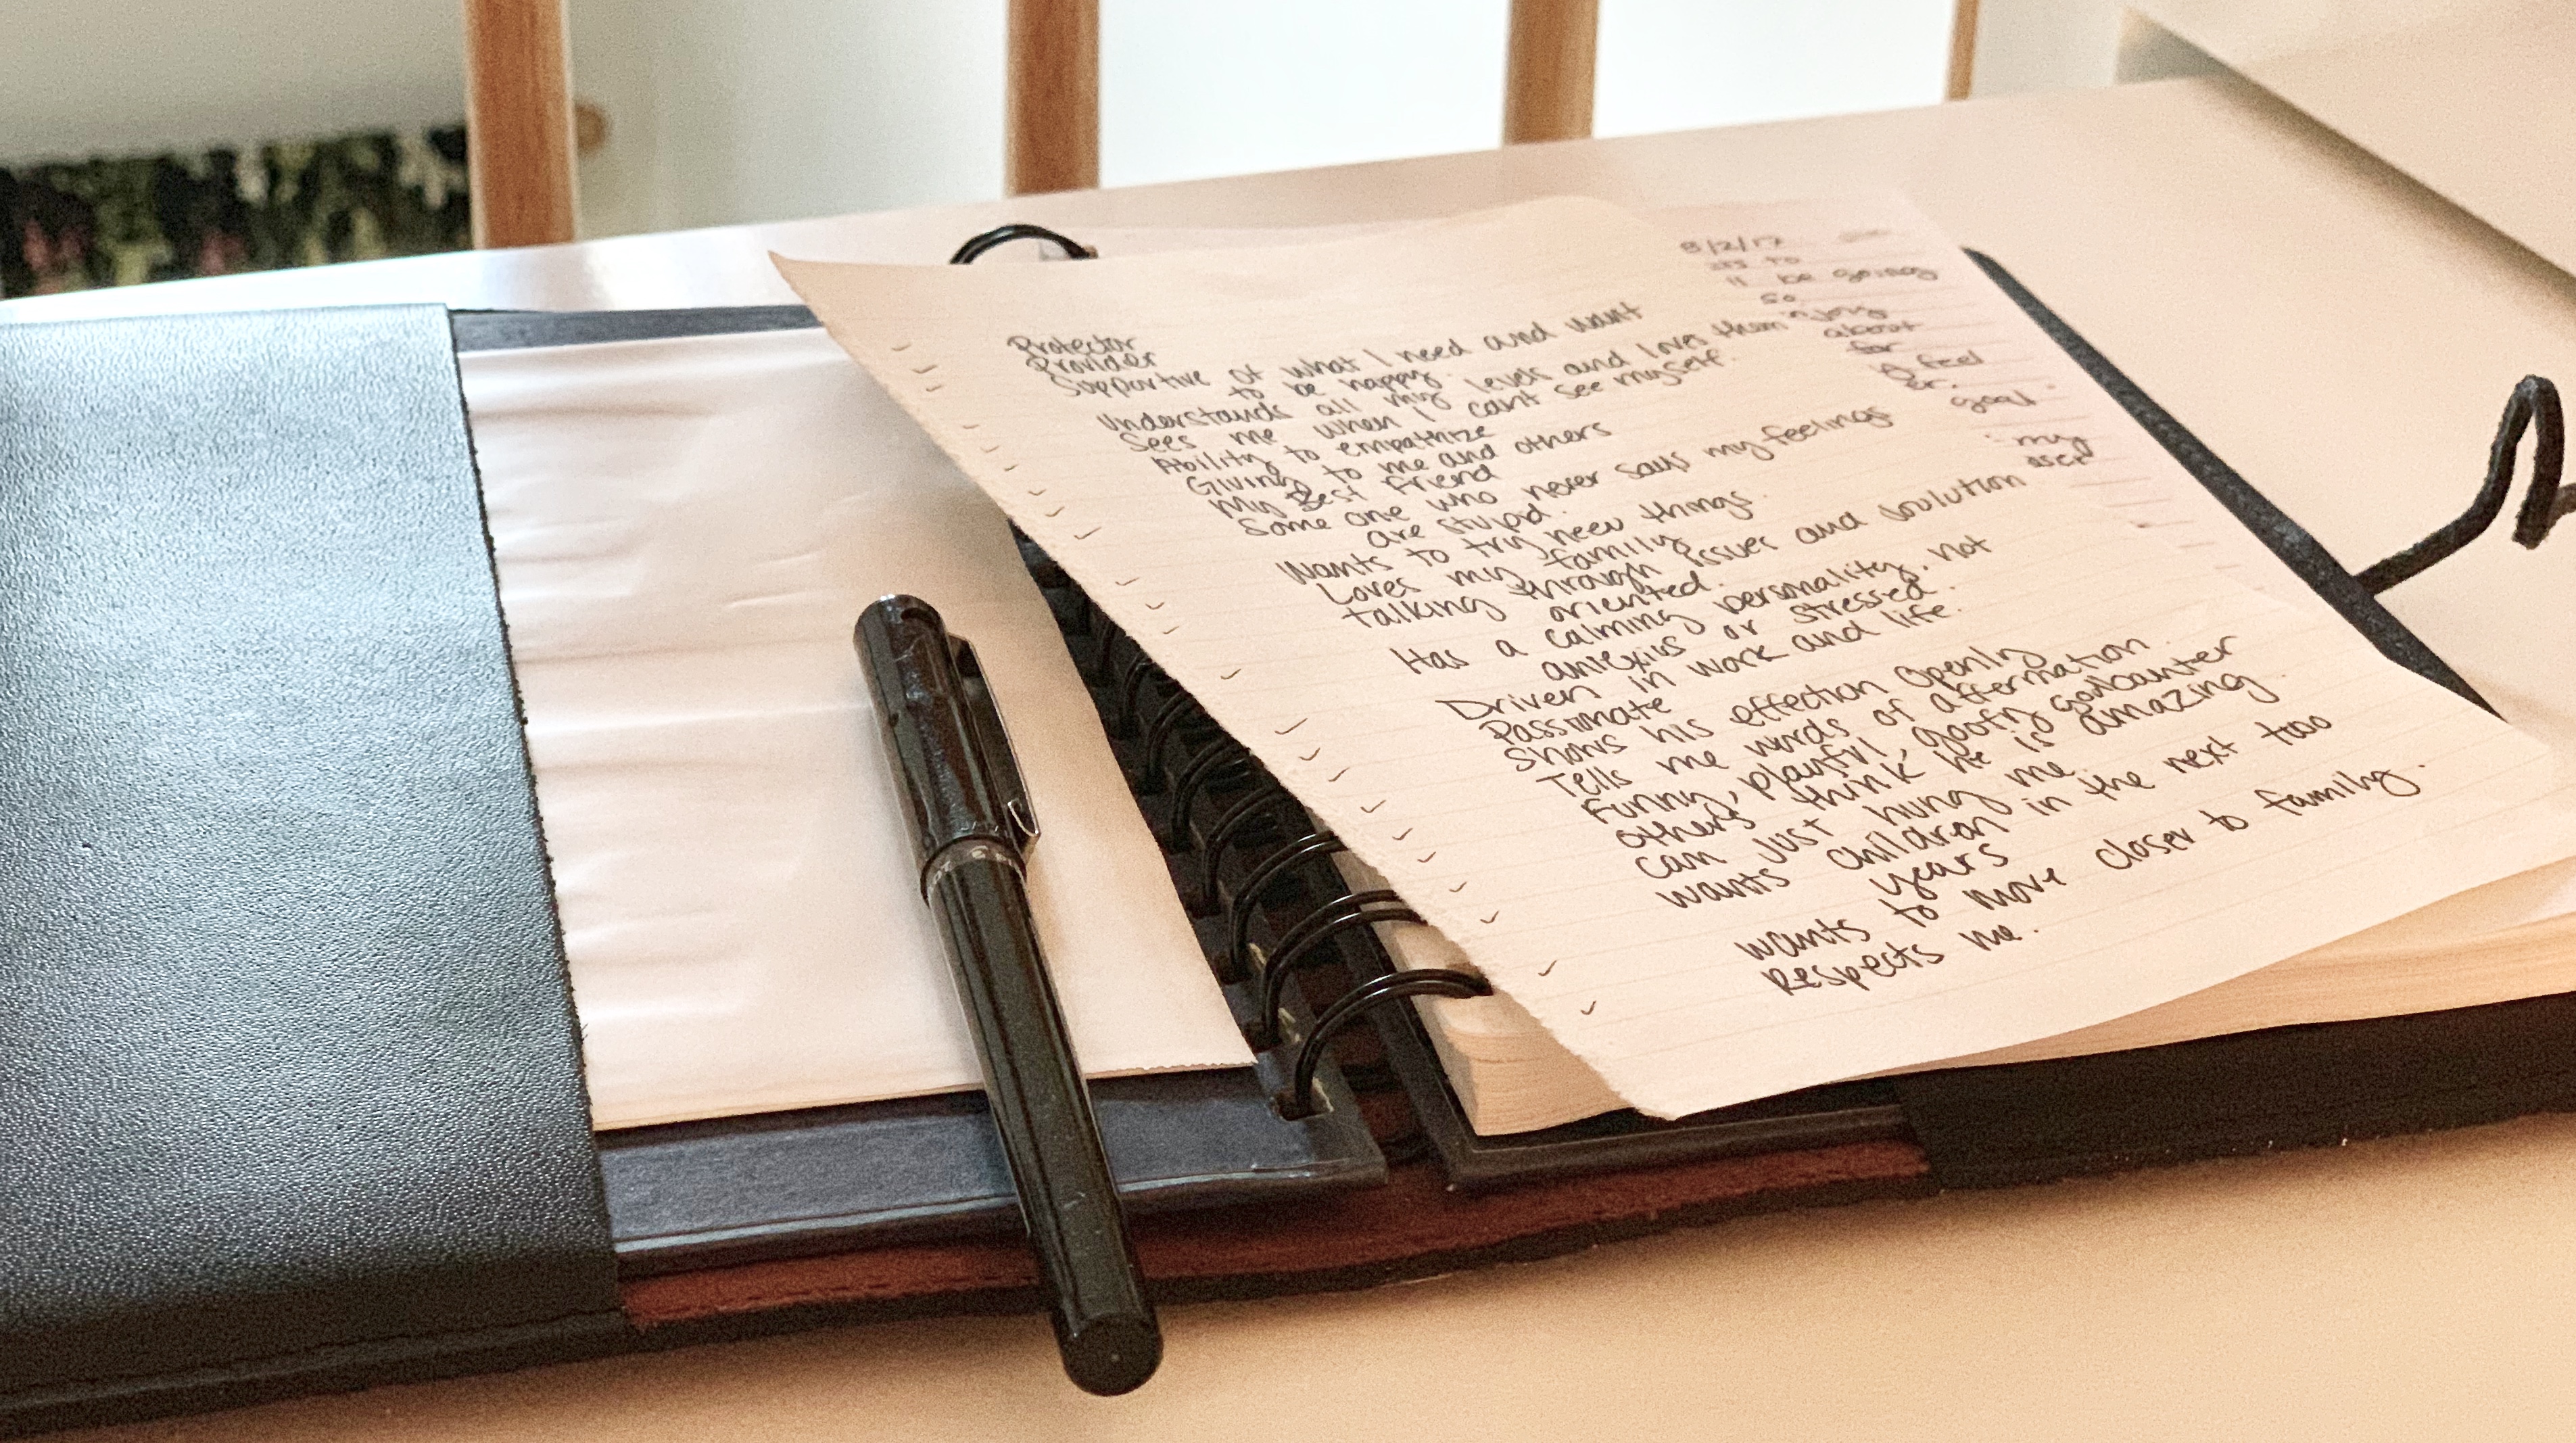 Protector
Provider
Supportive of what I need and want
to be happy.
Understands all my levels and loves them
Sees me when I cant see myself.
Ability to empathize
Giving to me and others
My Best Friend
Some one who never says my feelings
are stupid.
Wants to try new things.
Loves my family
talking through issues and soulution
oriented.
Has a calming personality, not
or stressed.
Driven in work and life.
Passionate
Shows his effection openly
Tells me words of affermation.
Funny, playful, goofy
others think he is amazing.
can just hung me.
wants children in the next two
years
wants to move closer to family.
Respects me.
8/2/17
to
be going
so
about
for
feel
goal
my